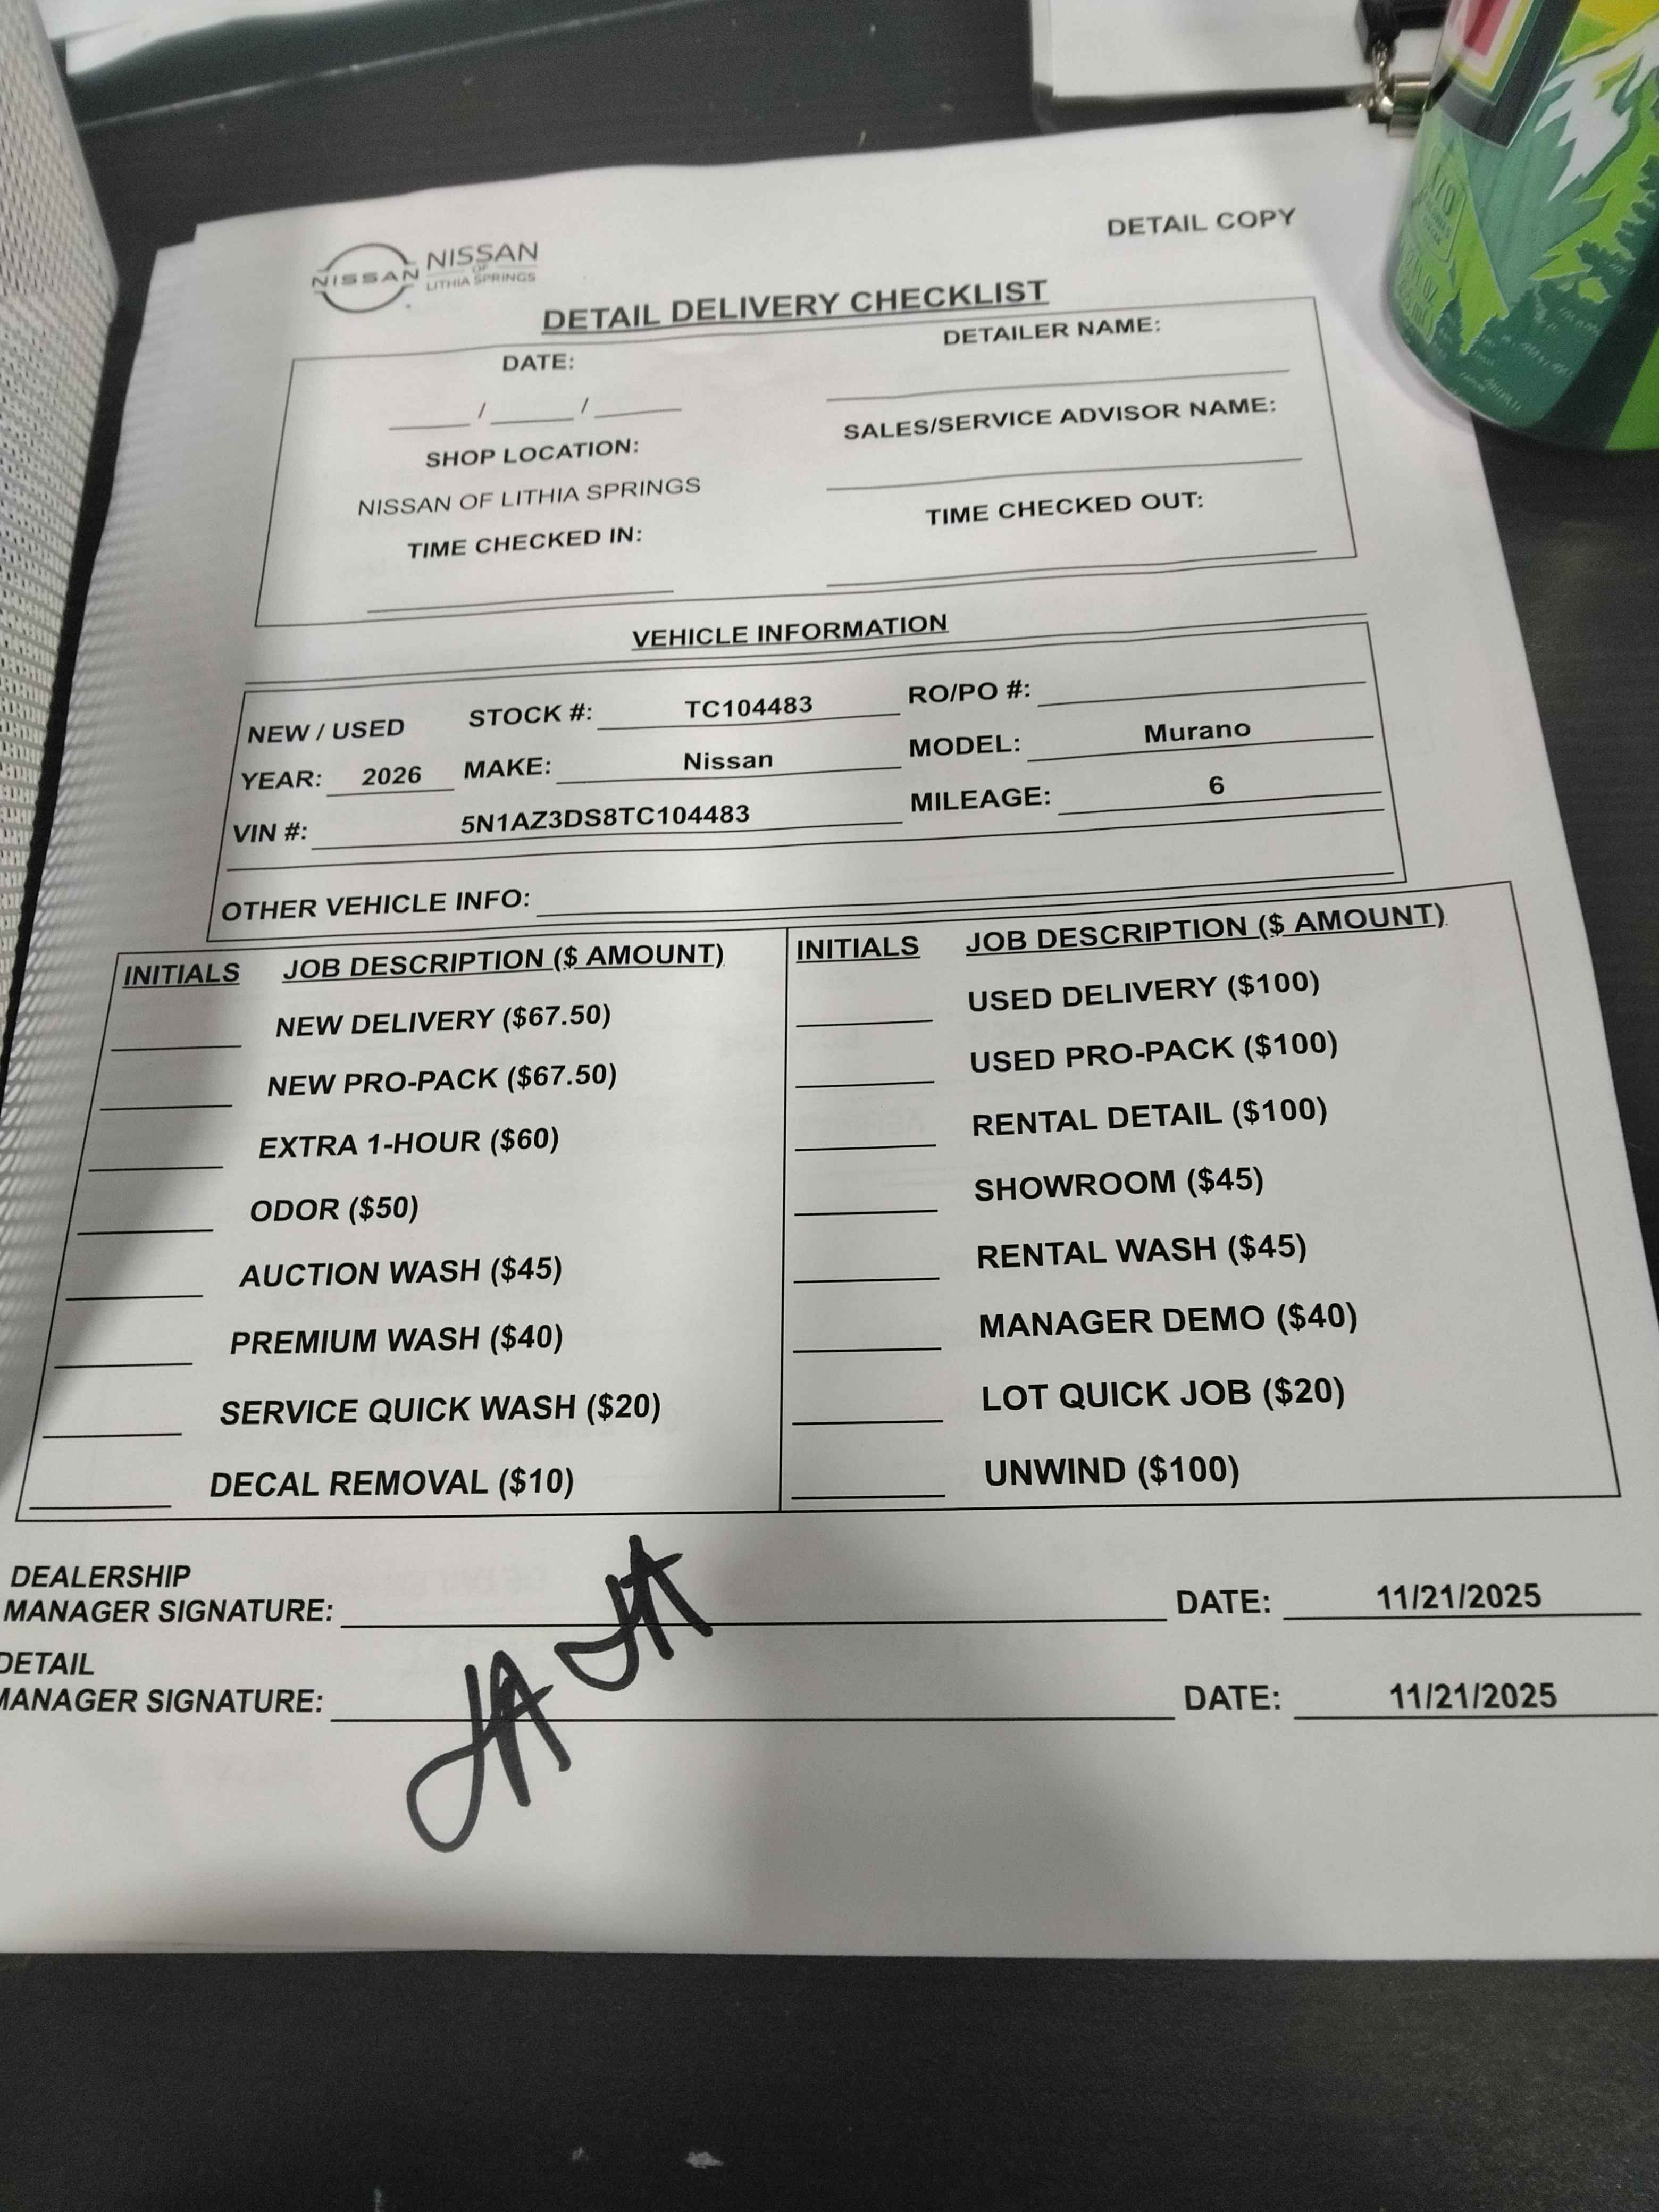 DETAIL COPY
NISSAN NISSAN
OF
LITHIA SPRINGS
DETAIL DELIVERY CHECKLIST
DATE: DETAILER NAME:
____ / ____ / ____
SHOP LOCATION: SALES/SERVICE ADVISOR NAME:
NISSAN OF LITHIA SPRINGS
TIME CHECKED IN: TIME CHECKED OUT:
VEHICLE INFORMATION
NEW / USED STOCK #: TC104483 RO/PO #:
YEAR: 2026 MAKE: Nissan MODEL: Murano
VIN #: 5N1AZ3DS8TC104483 MILEAGE: 6
OTHER VEHICLE INFO:
INITIALS JOB DESCRIPTION ($ AMOUNT) INITIALS JOB DESCRIPTION ($ AMOUNT)
NEW DELIVERY ($67.50) USED DELIVERY ($100)
NEW PRO-PACK ($67.50) USED PRO-PACK ($100)
EXTRA 1-HOUR ($60) RENTAL DETAIL ($100)
ODOR ($50) SHOWROOM ($45)
AUCTION WASH ($45) RENTAL WASH ($45)
PREMIUM WASH ($40) MANAGER DEMO ($40)
SERVICE QUICK WASH ($20) LOT QUICK JOB ($20)
DECAL REMOVAL ($10) UNWIND ($100)
DEALERSHIP
MANAGER SIGNATURE: DATE: 11/21/2025
DETAIL
MANAGER SIGNATURE: DATE: 11/21/2025